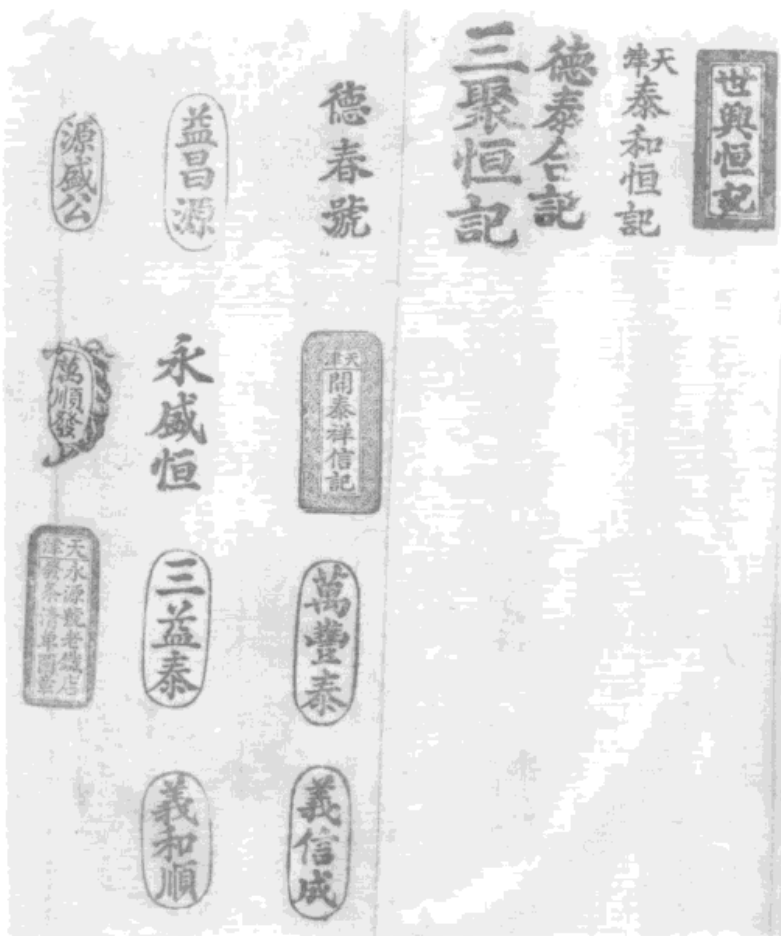 世興恒記
天津
泰和恒記
德泰合記
三聚恒記
德春號
天津
開泰祥信記
萬豐泰
義信成
益昌源
永盛恒
三益泰
義和順
源盛公
萬順發
天永源號老鐵店
津發条清單圖章